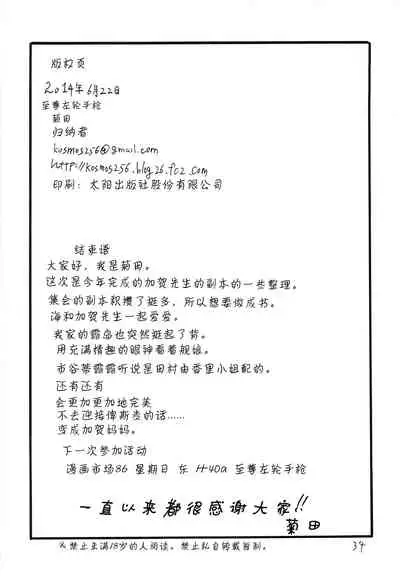 版权页
2014年6月22日
至尊左轮手枪
菊田
归纳者
kosmos256@gmail.com
http://kosmos256.blog26.fc2.com
印刷:太阳出版社股份有限公司
结束语
大家好,我是菊田。
这次是今年完成的加贺先生的副本的一些整理。
集会的副本积攒了挺多,所以想要做成书。
海和加贺先生一起爱爱。
我家的露岛也突然挺起了背。
用充满情趣的眼神看着舰娘。
市谷蒂露露听说是田村由香里小姐配的。
还有还有
会更加更加地完美
不去迎接俾斯麦的话……
变成加贺妈妈。
下一次参加活动
漫画市场86 星期日 东 H-40a 至尊左轮手枪
一直以来都很感谢大家!!
菊田
※禁止未满18岁的人阅读。禁止私自转载复制。
34